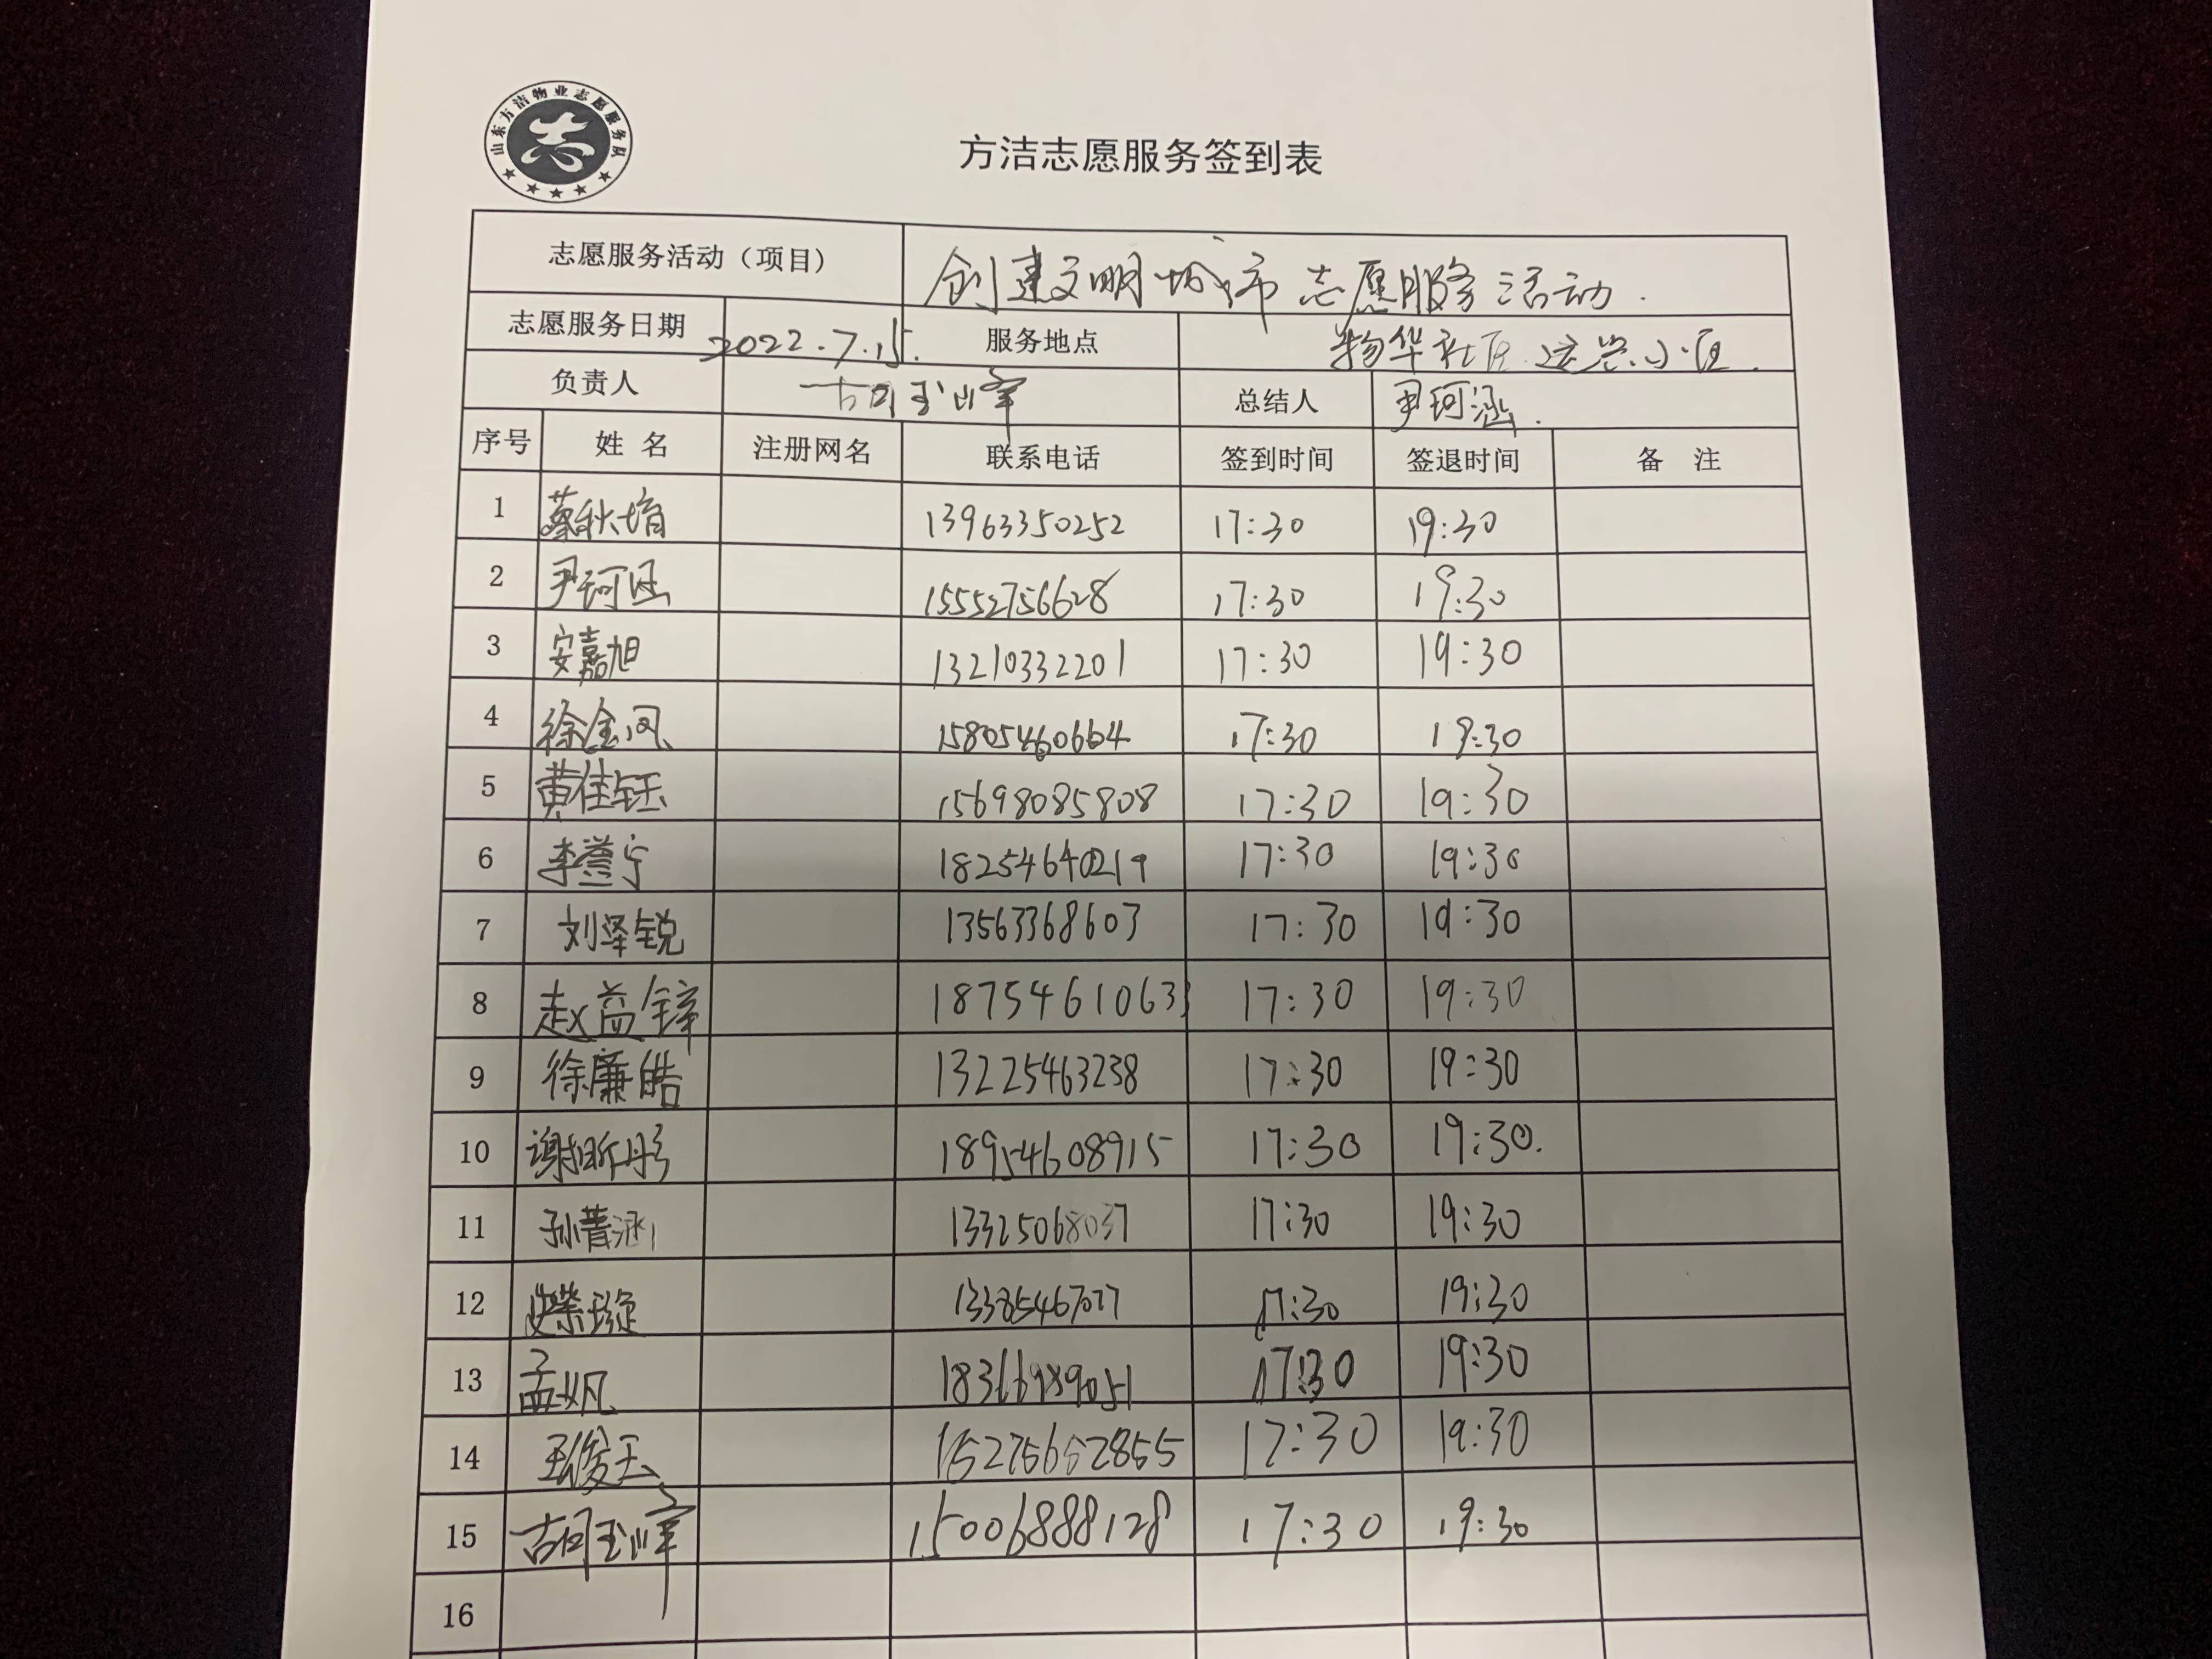 山东方洁物业志愿服务队
志
方洁志愿服务签到表
志愿服务活动（项目） 创建文明城市志愿服务活动.
志愿服务日期 2022.7.15. 服务地点 物华社区 运兴小区.
负责人 总结人 尹珂涵.
序号 姓 名 注册网名 联系电话 签到时间 签退时间 备 注
1 蔡秋堉 13963350252 17:30 19:30
2 尹珂涵 15552756628 17:30 19:30
3 安嘉旭 13210332201 17:30 19:30
4 徐金凤 15805460664 17:30 19:30
5 黄佳钰 15698085808 17:30 19:30
6 18254640219 17:30 19:30
7 刘泽锐 13563368603 17:30 19:30
8 赵益锌 18754610633 17:30 19:30
9 徐廉皓 13225463238 17:30 19:30
10 谢昕彤 18954608915 17:30 19:30.
11 孙菁涵 13325068037 17:30 19:30
12 17:30 19:30
13 孟凡 17:30 19:30
14 王俊玉 15275652855 17:30 19:30
15 15006888128 17:30 19:30
16